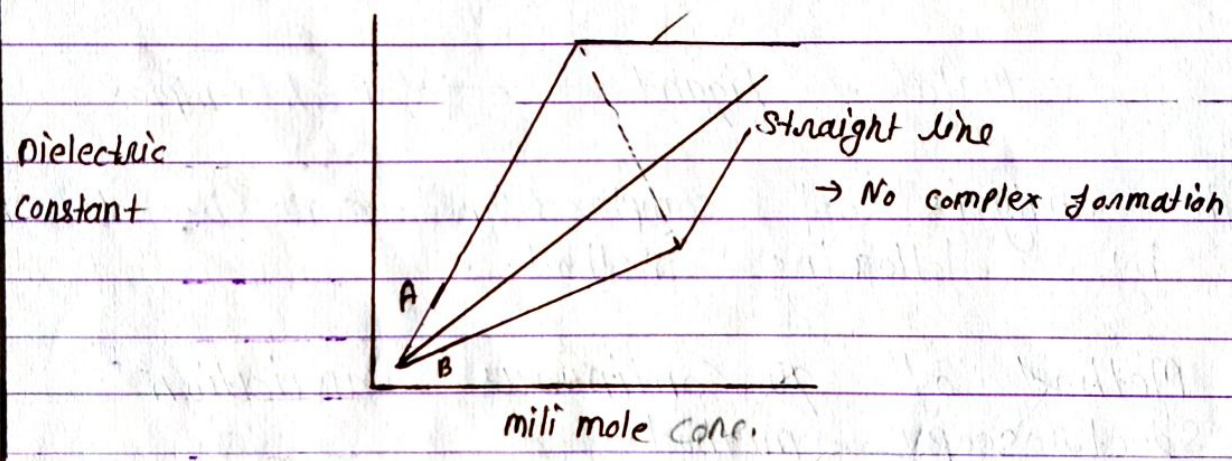 Dielectric
constant
Straight line
→ No complex formation
A
B
mili mole conc.